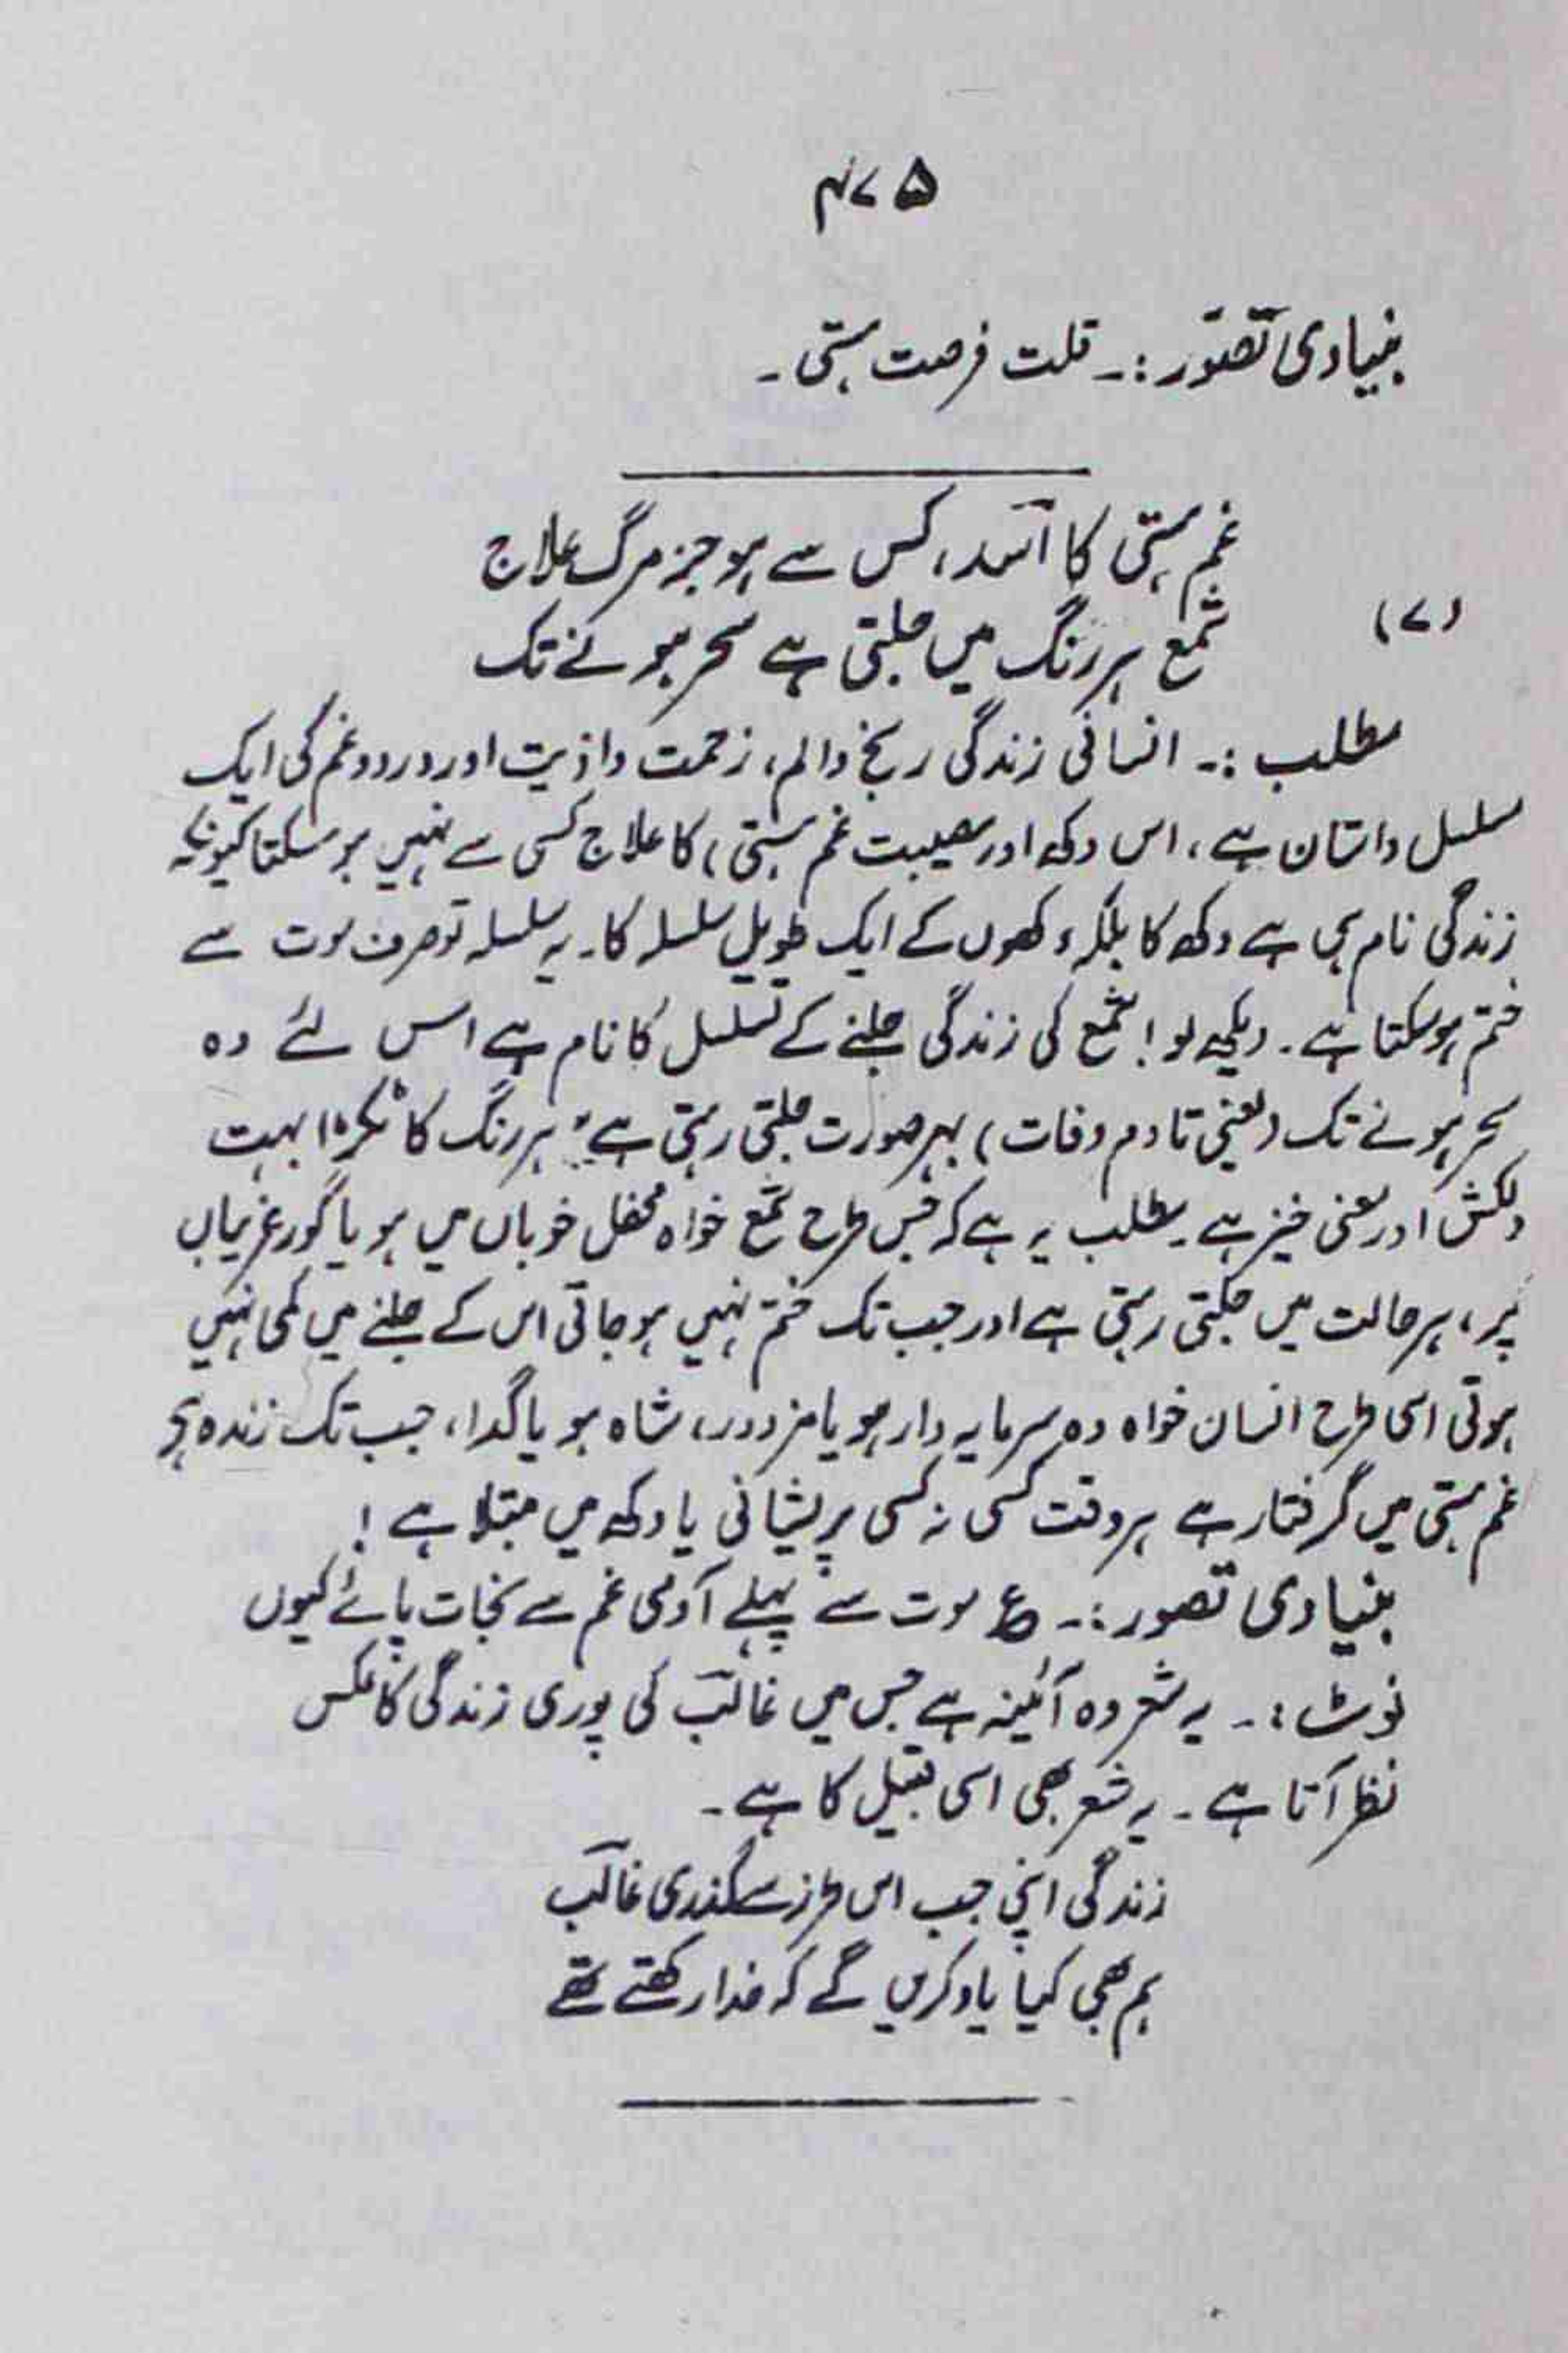 ۴۷۵
بنیادی تصّور :۔ قلت فرصت ہستی ۔
غم ہستی کا اسؔد، کس سے ہو جز مرگ علاج
(۷)
شمع ہر رنگ میں جلتی ہے سحر ہونے تک
مطلب :۔ انسانی زندگی رنج والم، زحمت واذیت اور درد و غم کی ایک
مسلسل داستان ہے، اس دکھ اور مصیبت غم ہستی) کا علاج کسی سے نہیں ہو سکتا کیونکہ
زندگی نام ہی ہے دکھ کا بلکہ دکھوں کے ایک طویل سلسلہ کا۔ یہ سلسلہ تو صرف موت سے
ختم ہو سکتا ہے ۔ دیکھ لو! شمع کی زندگی جلنے کے تسلسل کا نام ہے اس لئے وہ
سحر ہونے تک (یعنی تا دم وفات) بہر صورت جلتی رہتی ہے" ہر رنگ کا ٹکڑا بہت
دلکش اور معنی خیز ہے۔ مطلب یہ ہے کہ جس طرح شمع خواہ محفل خوباں میں ہو یا گور غریباں
پر، ہر حالت میں جلتی رہتی ہے اور جب تک ختم نہیں ہو جاتی اس کے جلنے میں کمی نہیں
ہوتی اسی طرح انسان خواہ وہ سرمایہ دار ہو یا مزدور، شاہ ہو یا گدا، جب تک زندہ ہے
غم ہستی میں گرفتار ہے ہر وقت کسی نہ کسی پریشانی یا دکھ میں مبتلا ہے !
بنیادی تصور :۔ ع موت سے پہلے آدمی غم سے نجات پائے کیوں
نوٹ :۔ یہ شعر وہ آئینہ ہے جس میں غالبؔ کی پوری زندگی کا عکس
نظر آتا ہے ۔ یہ شعر بھی اسی قبیل کا ہے ۔
زندگی اپنی جب اس طرز سے گذری غالبؔ
ہم بھی کیا یاد کریں گے کہ خدا رکھتے تھے